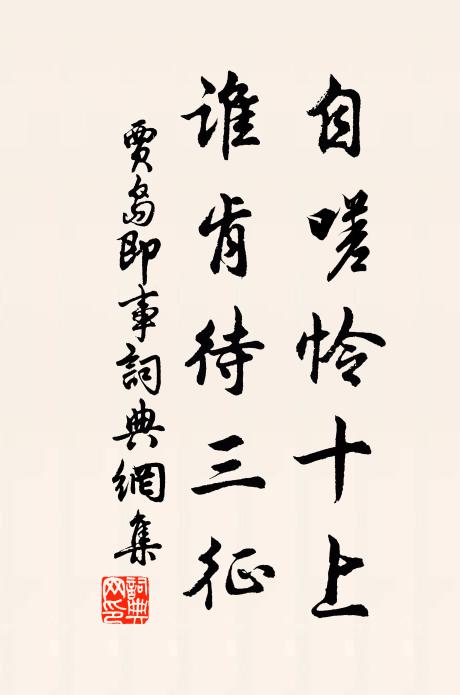 自嗟怜十上
谁肯待三征
賈島即事詞典網集
詞典网印